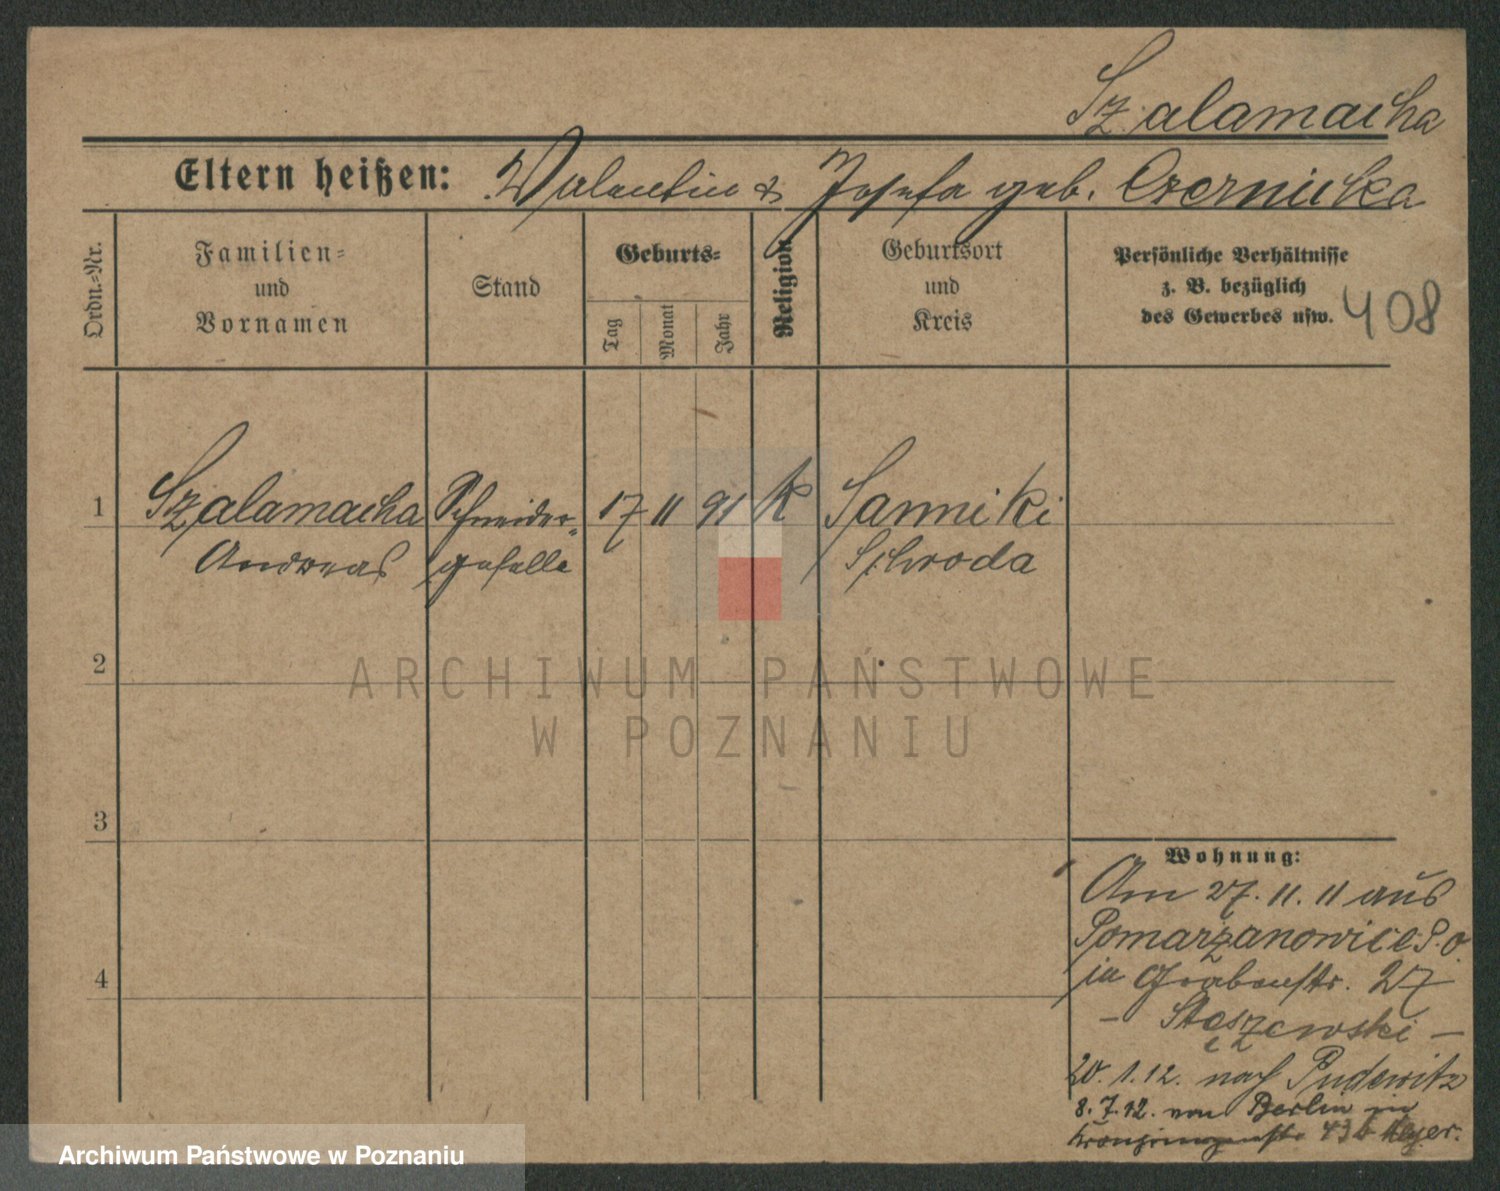 Szalamacha
Eltern heißen: Valentin & Josefa geb. Czernicka
Ordn.=Nr.
Familien=
und
Vornamen
Stand
Geburts=
Tag
Monat
Jahr
Religion
Geburtsort
und
Kreis
Persönliche Verhältnisse
z. B. bezüglich
des Gewerbes usw.
408
1 Szalamacha Schneider= 17 11 91 K Sanniki
Andreas geselle Schroda
2
ARCHIWUM PAŃSTWOWE
W POZNANIU
3
4
Wohnung:
Am 27. 11. 11 aus
Pomarzanowice P. o.
in Grabenstr. 27
– Stęszewski –
20. 1. 12. nach Pudewitz
8. 7. 12. von Berlin in
Kronprinzenstr. Meyer.
Archiwum Państwowe w Poznaniu